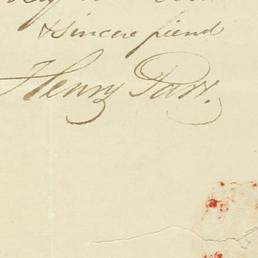 & Sincere friend
Henry Parr.